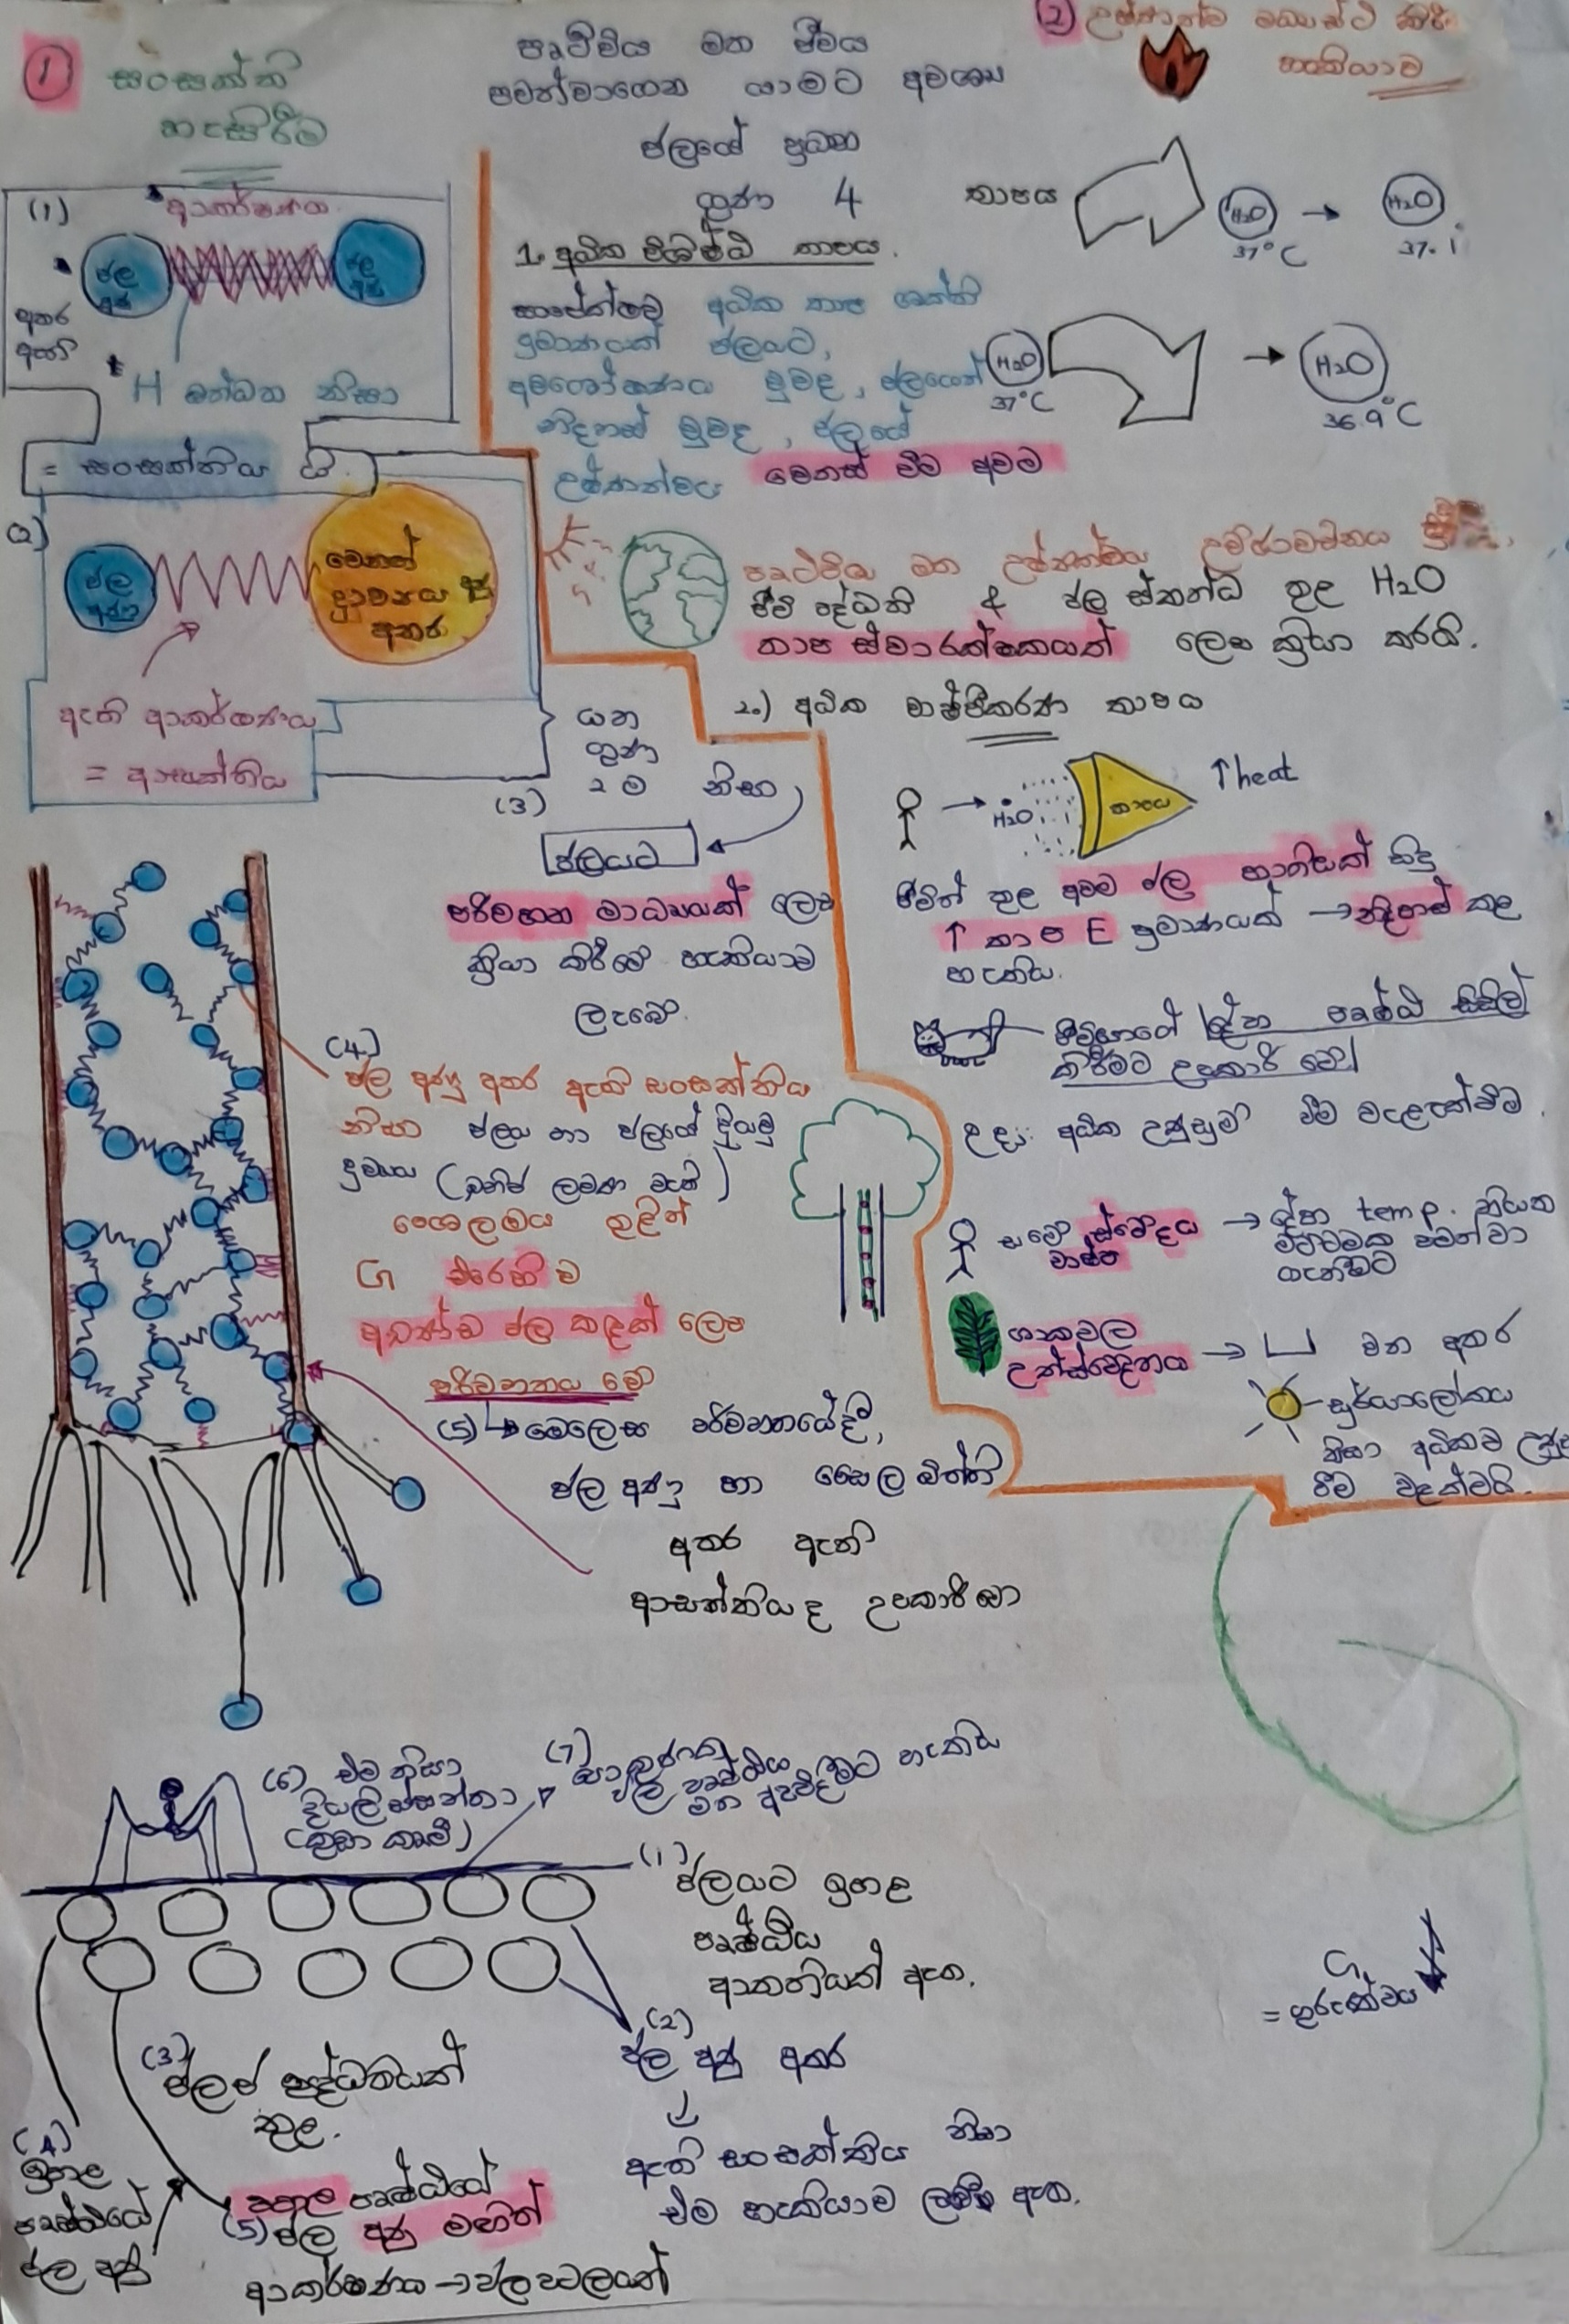 පෘථිවිය මත ජීවය
පවත්වාගෙන යාමට අවශ්‍ය
ජලයේ ප්‍රධාන
ගුණ 4
1
සංසක්ති
හැසිරීම
(1)
ආකර්ෂණය
ජල
අණු
ජල
අණු
අතර
ඇති
H බන්ධන නිසා
= සංසක්තිය යි.
(2)
ජල
අණු
වෙනත්
ද්‍රාව්‍යය
අතර
ඇති ආකර්ශණය
= ආසක්තිය
යන
ගුණ
2 ම නිසා
(3)
ජලයට
පරිවහන මාධ්‍යයක් ලෙස
ක්‍රියා කිරීමේ හැකියාව
ලැබේ.
(4)
ජල අණු අතර ඇති සංසක්තිය
නිසා ජලය හා ජලයේ දියවූ
ද්‍රව්‍ය (ඛනිජ ලවණ වැනි)
ශෛලමය තුළින්
G එරෙහි ව
අඛණ්ඩ ජල කඳක් ලෙස
පරිවහනය වේ
(5) මෙලෙස පරිවහනයේදී,
ජල අණු හා සෛල බිත්ති
අතර ඇති
ආසක්තිය ද උපකාරී වේ
2 උෂ්ණත්ව
හැකියාව
තාපය
H₂O
37°C
H₂O
37.1
1. අධික විශිෂ්ට තාපය.
සාපේක්ෂව අධික තාප ශක්ති
ප්‍රමාණයක් ජලයට,
අවශෝෂණය වුවද, ජලයෙන්
නිදහස් වුවද, ජලයේ
උෂ්ණත්වය වෙනස් වීම අවම
H₂O
37°C
H₂O
36.9°C
පෘථිවිය මත උෂ්ණත්වය උච්ඡාවචනය
ජීවී පද්ධති & ජල ස්කන්ධ තුළ H₂O
තාප ස්වාරක්ෂකයක් ලෙස ක්‍රියා කරයි.
2.) අධික වාෂ්පීකරණ තාපය
H₂O
තාපය
↑heat
ජීවීන් තුළ අවම ජල හානියක් සිදු
↑ තාප E ප්‍රමාණයක් → නිදහස් කළ
හැකිය.
ජීවියාගේ දේහ පෘෂ්ඨ සිසිල්
කිරීමට උපකාරී වේ
උදා: අධික උණුසුම් වීම වැළැක්වීම.
සමේ ස්වේදය
වාෂ්ප
→ දේහ temp. නියත
මට්ටමක පවත්වා
ගැනීමට
ශාකවල
උත්ස්වේදනය →
වන අතර
සූර්යාලෝකය
නිසා අධිකව
වීම වළක්වයි.
(6) එම නිසා
දියලිස්සන්නා
(කුඩා කෘමි)
(7)
ජල පෘෂ්ඨය
මත ඇවිදීමට හැකිය
(1)
ජලයට ඉහළ
පෘෂ්ඨීය
ආතතියක් ඇත.
(2)
ජල අණු අතර
ඇති සංසක්තිය නිසා
එම හැකියාව ලැබී ඇත.
(3)
ජලජ පද්ධතියක්
තුළ.
(4)
ඉහළ
පෘෂ්ඨයේ
ජල අණු
(5)
පහළ පෘෂ්ඨයේ
ජල අණු මඟින්
ආකර්ෂණය → ජල පටලයක්
G
= ගුරුත්වය